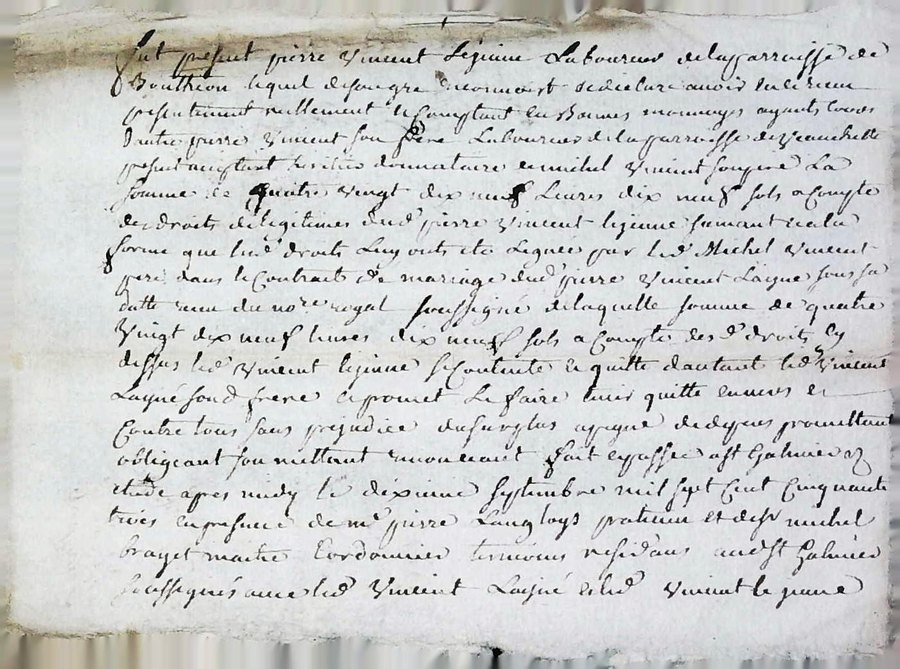 fut present pierre Vincent Lejeune Laboureur delaparroisse de
Bouthéon lequel desongre reconnoit & declare avoir eu & receu
presentement reellement & Comptant en Bonnes monnoyes ayants cours
Dautre pierre Vincent son frere Laboureur de la parroisse de Veauchette
present acceptant heritier donnataire de michel Vincent son pere La
somme de quatre vingt dix neuf Livres dix neuf sols a Compte
des droits de legitimes dud pierre Vincent lejeune suivant & a la
forme que lesd droits Luy ont ete Legués par led Michel Vincent
pere dans le Contrait de mariage dud pierre Vincent Layné sous sa
datte receu du nore royal soussigné de laquelle somme de quatre
Vingt dix neuf livres dix neuf sols a Compte des d droits cy
dessus led Vincent lejeune se Contente & quitte dautant led Vincent
Layné sond frere & promet Le faire tenir quitte envers et
Contre tous sans prejudice du surplus a peyne de depens promettant
obligeant soumettant renonceant fait & passé a st Galmier
etude apres midy le dixieme septembre mil sept Cent Cinquante
trois en presence de me pierre Langloys praticien et de sr michel
brayet maitre Cordonnier temoins residans aud st Galmier
soussignés avec led Vincent Layné & led Vincent le jeune